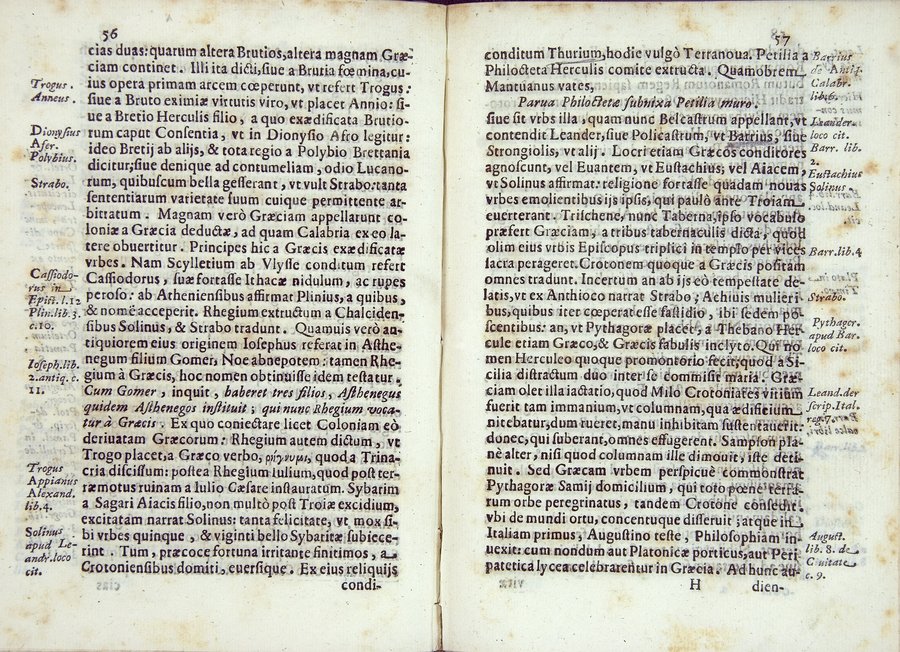 56
cias duas: quarum altera Brutios, altera magnam Græ-
ciam continet. Illi ita dicti, siue a Brutia fœmina, cu-
ius opera primam arcem cœperunt, vt refert Trogus:
siue a Bruto eximiæ virtutis viro, vt placet Annio: si-
ue a Bretio Herculis filio, a quo exædificata Brutio-
rum caput Consentia, vt in Dionysio Afro legitur:
ideo Bretij ab alijs, & tota regio a Polybio Brettania
dicitur; siue denique ad contumeliam, odio Lucano-
rum, quibuscum bella gesserant, vt vult Strabo: tanta
sententiarum varietate suum cuique permittente ar-
bittatum. Magnam verò Græciam appellarunt co-
loniæ a Græcia deductæ, ad quam Calabria ex eo la-
tere obuertitur. Principes hic a Græcis exædificatæ
vrbes. Nam Scylletium ab Vlysse conditum refert
Cassiodorus, suæ fortasse Ithacæ nidulum, ac rupes
peroso: ab Atheniensibus affirmat Plinius, a quibus,
& nomē acceperit. Rhegium extructum a Chalciden-
sibus Solinus, & Strabo tradunt. Quamuis verò an-
tiquiorem eius originem Iosephus referat in Asthe-
negum filium Gomer, Noe abnepotem: tamen Rhe-
gium à Græcis, hoc nomen obtinuisse idem testatur.
Cum Gomer, inquit, haberet tres filios, Asthenegus
quidem Asthenegos instituit; qui nunc Rhegium voca-
tur à Græcis. Ex quo coniectare licet Coloniam eò
deriuatam Græcorum: Rhegium autem dictum, vt
Trogo placet, a Græco verbo, ῥήγνυμι, quod a Trina-
cria discissum: postea Rhegium iulium, quod post ter-
ræmotus ruinam a Iulio Cæsare instauratum. Sybarim
a Sagari Aiacis filio, non multò post Troiæ excidium,
excitatam narrat Solinus: tanta felicitate, vt mox si-
bi vrbes quinque, & viginti bello Sybaritæ subiece-
rint. Tum, præcoce fortuna irritante finitimos, a
Crotoniensibus domiti, euersique. Ex eius reliquijs
condi-
Trogus.
Anneus.
Dionysius
Afer.
Polybius.
Strabo.
Cassiodo-
rus in
Epist. l. 12
Plin. lib. 3.
c. 10.
Ioseph. lib.
2. antiq. c.
11.
Trogus
Appianus
Alexand.
lib. 4.
Solinus
apud Le-
andr. loco
cit.
57
conditum Thurium, hodie vulgò Terranoua. Petilia a
Philocteta Herculis comite extructa. Quamobrem
Mantuanus vates.
Parua Philoctetæ subnixa Petilia muro.
siue sit vrbs illa, quam nunc Belcastrum appellant, vt
contendit Leander, siue Policastrum, vt Barrius, siue
Strongiolis, vt alij. Locri etiam Græcos conditores
agnoscunt, vel Euantem, vt Eustachius; vel Aiacem,
vt Solinus affirmat: religione fortasse quadam nouas
vrbes emolientibus ijs ipsis, qui paulò ante Troiam
euerterant. Trischene, nunc Taberna, ipso vocabulo
præfert Græciam, a tribus tabernaculis dicta, quod
olim eius vrbis Episcopus triplici in templo per vices
sacra perageret. Crotonem quoque a Græcis positam
omnes tradunt. Incertum an ab ijs eò tempestate de-
latis, vt ex Anthioco narrat Strabo; Achiuis mulieri
bus, quibus iter cœperat esse fastidio, ibi sedem po-
scentibus: an, vt Pythagoræ placet, a Thebano Her-
cule etiam Græco, & Græcis fabulis inclyto. Qui no-
men Herculeo quoque promontorio fecit, quod a Si-
cilia distractum duo inter se commisit maria. Græ-
ciam olet illa iactatio, quod Milo Crotoniates vitium
fuerit tam immanium, vt columnam, qua ædificium
nitebatur, dum rueret, manu inhibitam sustentauerit:
donec, qui suberant, omnes effugerent. Sampson pla-
nè alter, nisi quod columnam ille dimouit, iste deti-
nuit. Sed Græcam vrbem perspicuè commonstrat
Pythagoræ Samij domicilium, qui toto pœne terra-
rum orbe peregrinatus, tandem Crotone consedit:
vbi de mundi ortu, concentuque disseruit; atque in
Italiam primus, Augustino teste, Philosophiam in-
uexit: cum nondum aut Platonicæ porticus, aut Peri-
patetica lycea celebrarentur in Græcia. Ad hunc au-
H
dien-
Barrius
de Antiq.
Calabr.
lib. 6.
Leander.
loco cit.
Barr. lib.
2.
Eustachius
Solinus
Barr. lib. 4
Strabo.
Pythagor.
apud Bar.
loco cit.
Leand. de
scrip. Ital.
reg. 7.
August.
lib. 8. de
Ciuitate
c. 9.